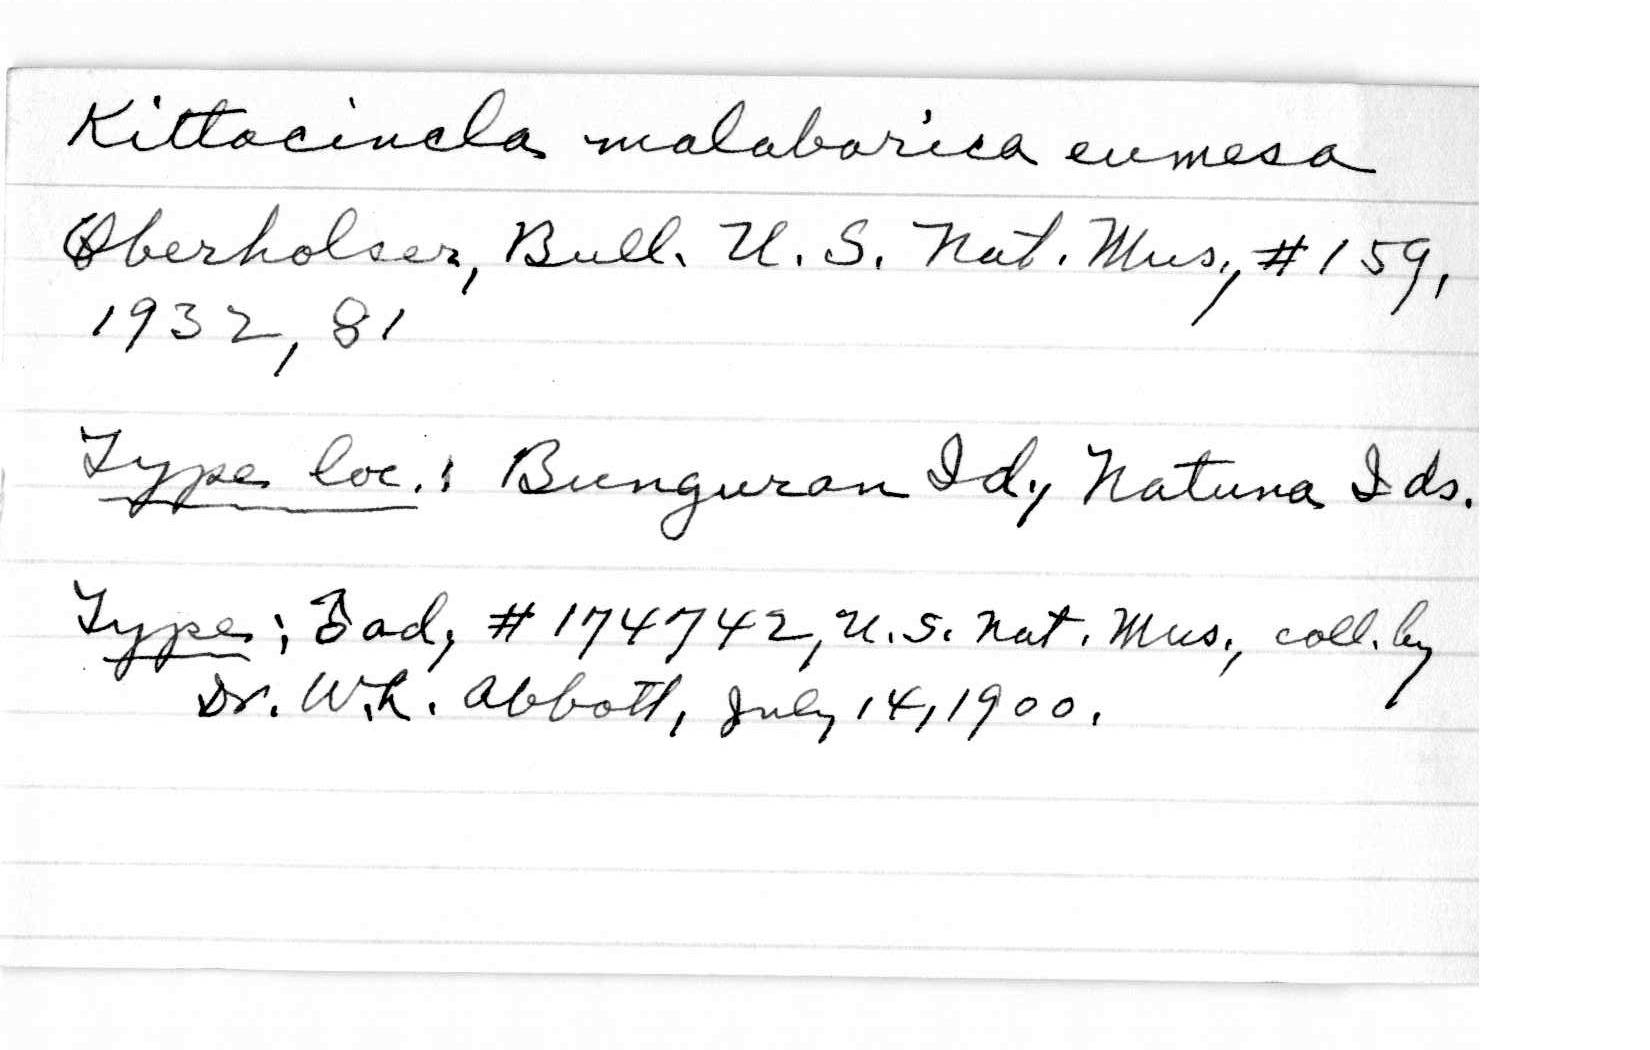 Kittacincla malabarica eumesa
Oberholser, Bull. U. S. Nat. Mus., #159,
1932, 81
Type loc.: Bunguran Id., Natuna Ids.
Type: ♂ ad, #174742, U.S. Nat. Mus., coll. by
Dr. W.L. Abbott, July 14, 1900.